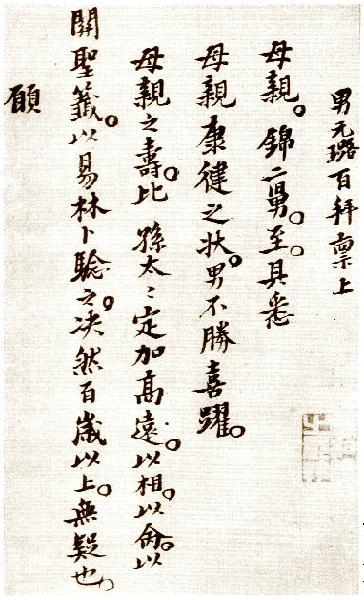 男元璐百拜稟上
母親。錦二舅。至。具悉
母親康健之狀。男不勝喜躍。
母親之壽。比孫太〻定加高遠。以相。以命。以
關聖籤。以易林卜騐之。决然百歲以上。無疑也。
願